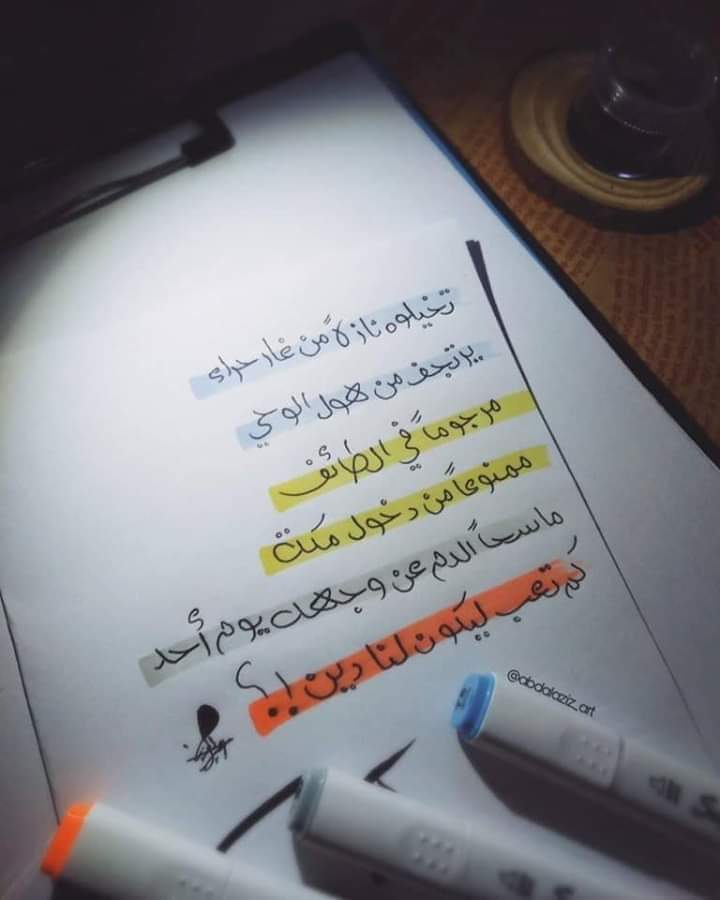 تخيلوه نازلاً من غار حراء
يرتجف من هول الوحي
مرجوماً في الطائف
ممنوعاً من دخول مكة
ماسحاً الدم عن وجهه يوم أحد
كم تعب ليكون لنا دين !.؟
@abdalaziz_art